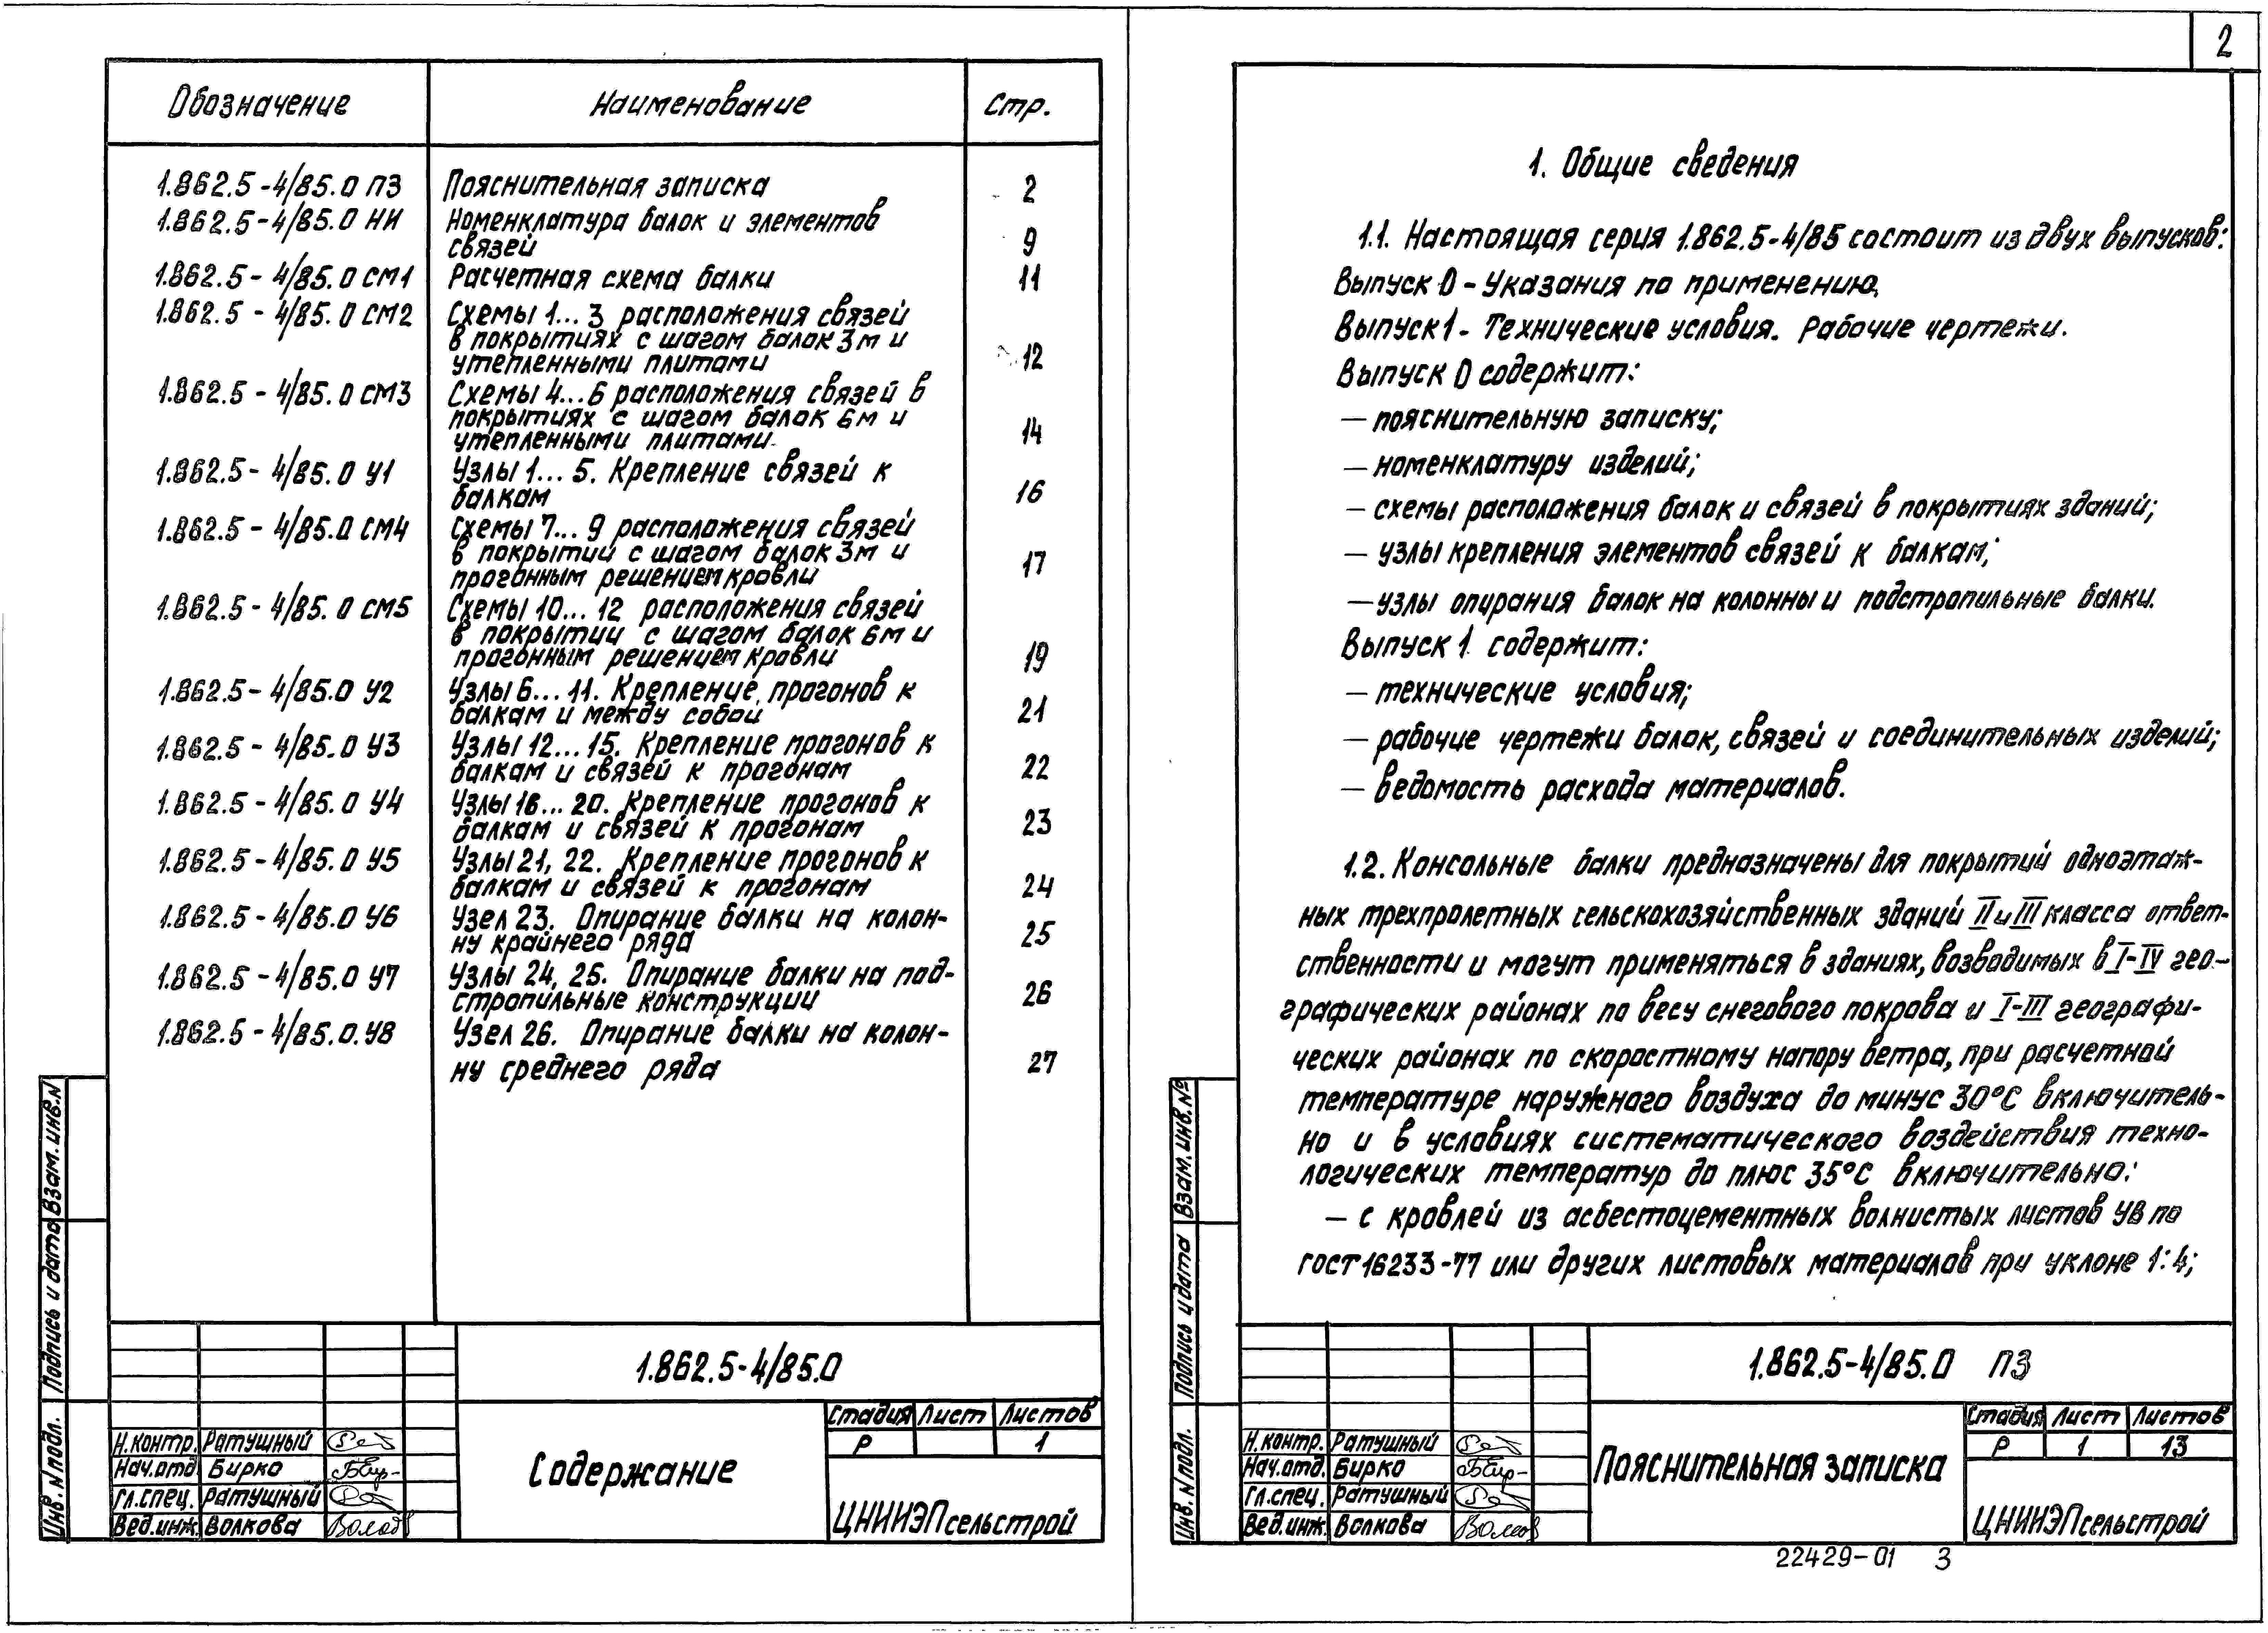 Обозначение Наименование Стр.
1.862.5-4/85.0 ПЗ Пояснительная записка 2
1.862.5-4/85.0 НИ Номенклатура балок и элементов
связей 9
1.862.5-4/85.0 СМ1 Расчетная схема балки 11
1.862.5-4/85.0 СМ2 Схемы 1...3 расположения связей
в покрытиях с шагом балок 3м и
утепленными плитами 12
1.862.5-4/85.0 СМ3 Схемы 4...6 расположения связей в
покрытиях с шагом балок 6м и
утепленными плитами. 14
1.862.5-4/85.0 У1 Узлы 1...5. Крепление связей к
балкам 16
1.862.5-4/85.0 СМ4 Схемы 7...9 расположения связей
в покрытии с шагом балок 3м и
прогонным решением кровли 17
1.862.5-4/85.0 СМ5 Схемы 10...12 расположения связей
в покрытии с шагом балок 6м и
прогонным решением кровли 19
1.862.5-4/85.0 У2 Узлы 6...11. Крепление прогонов к
балкам и между собой 21
1.862.5-4/85.0 У3 Узлы 12...15. Крепление прогонов к
балкам и связей к прогонам 22
1.862.5-4/85.0 У4 Узлы 16...20. Крепление прогонов к
балкам и связей к прогонам 23
1.862.5-4/85.0 У5 Узлы 21, 22. Крепление прогонов к
балкам и связей к прогонам 24
1.862.5-4/85.0 У6 Узел 23. Опирание балки на колон-
ну крайнего ряда 25
1.862.5-4/85.0 У7 Узлы 24, 25. Опирание балки на под-
стропильные конструкции 26
1.862.5-4/85.0.У8 Узел 26. Опирание балки на колон-
ну среднего ряда 27
Взам. инв. N
Подпись и дата
Инв. N подл.
1.862.5-4/85.0
Стадия Лист Листов
Р 1
Н.контр. Ратушный
Нач.отд. Бирко
Гл.спец. Ратушный
Вед.инж. Волкова
Содержание
ЦНИИЭПсельстрой
2
1. Общие сведения
1.1. Настоящая серия 1.862.5-4/85 состоит из двух выпусков:
Выпуск 0 - Указания по применению,
Выпуск 1 - Технические условия. Рабочие чертежи.
Выпуск 0 содержит:
— пояснительную записку;
— номенклатуру изделий;
— схемы расположения балок и связей в покрытиях зданий;
— узлы крепления элементов связей к балкам;
— узлы опирания балок на колонны и подстропильные балки.
Выпуск 1 содержит:
— технические условия;
— рабочие чертежи балок, связей и соединительных изделий;
— ведомость расхода материалов.
1.2. Консольные балки предназначены для покрытий одноэтаж-
ных трехпролетных сельскохозяйственных зданий II и III класса ответ-
ственности и могут применяться в зданиях, возводимых в I-IV гео-
графических районах по весу снегового покрова и I-III географи-
ческих районах по скоростному напору ветра, при расчетной
температуре наружного воздуха до минус 30°С включитель-
но и в условиях систематического воздействия техно-
логических температур до плюс 35°С включительно:
— с кровлей из асбестоцементных волнистых листов УВ по
ГОСТ 16233-77 или других листовых материалов при уклоне 1:4;
Взам. инв. №
Подпись и дата
Инв. N подл.
1.862.5-4/85.0 ПЗ
Стадия Лист Листов
Р 1 13
Н.контр. Ратушный
Нач.отд. Бирко
Гл.спец. Ратушный
Вед.инж. Волкова
Пояснительная записка
ЦНИИЭПсельстрой
22429-01 3